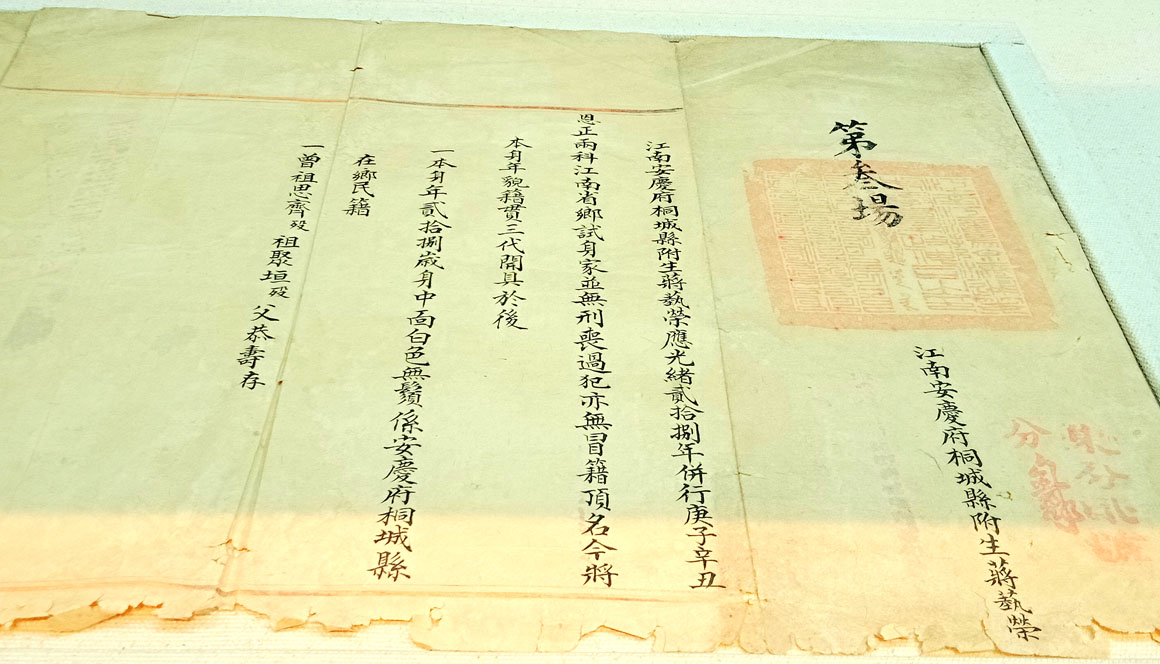 第叁場
江南安慶府桐城縣附生蔣藝榮
江南安慶府桐城縣附生蔣藝榮應光緒貳拾捌年併行庚子辛丑
恩正兩科江南省鄉試身家並無刑喪過犯亦無冒籍頂名今將
本身年貌籍貫三代開具於後
一本身年貳拾捌歲身中面白色無鬚係安慶府桐城縣
在鄉民籍
一曾祖思齊歿 祖聚垣歿 父恭壽存